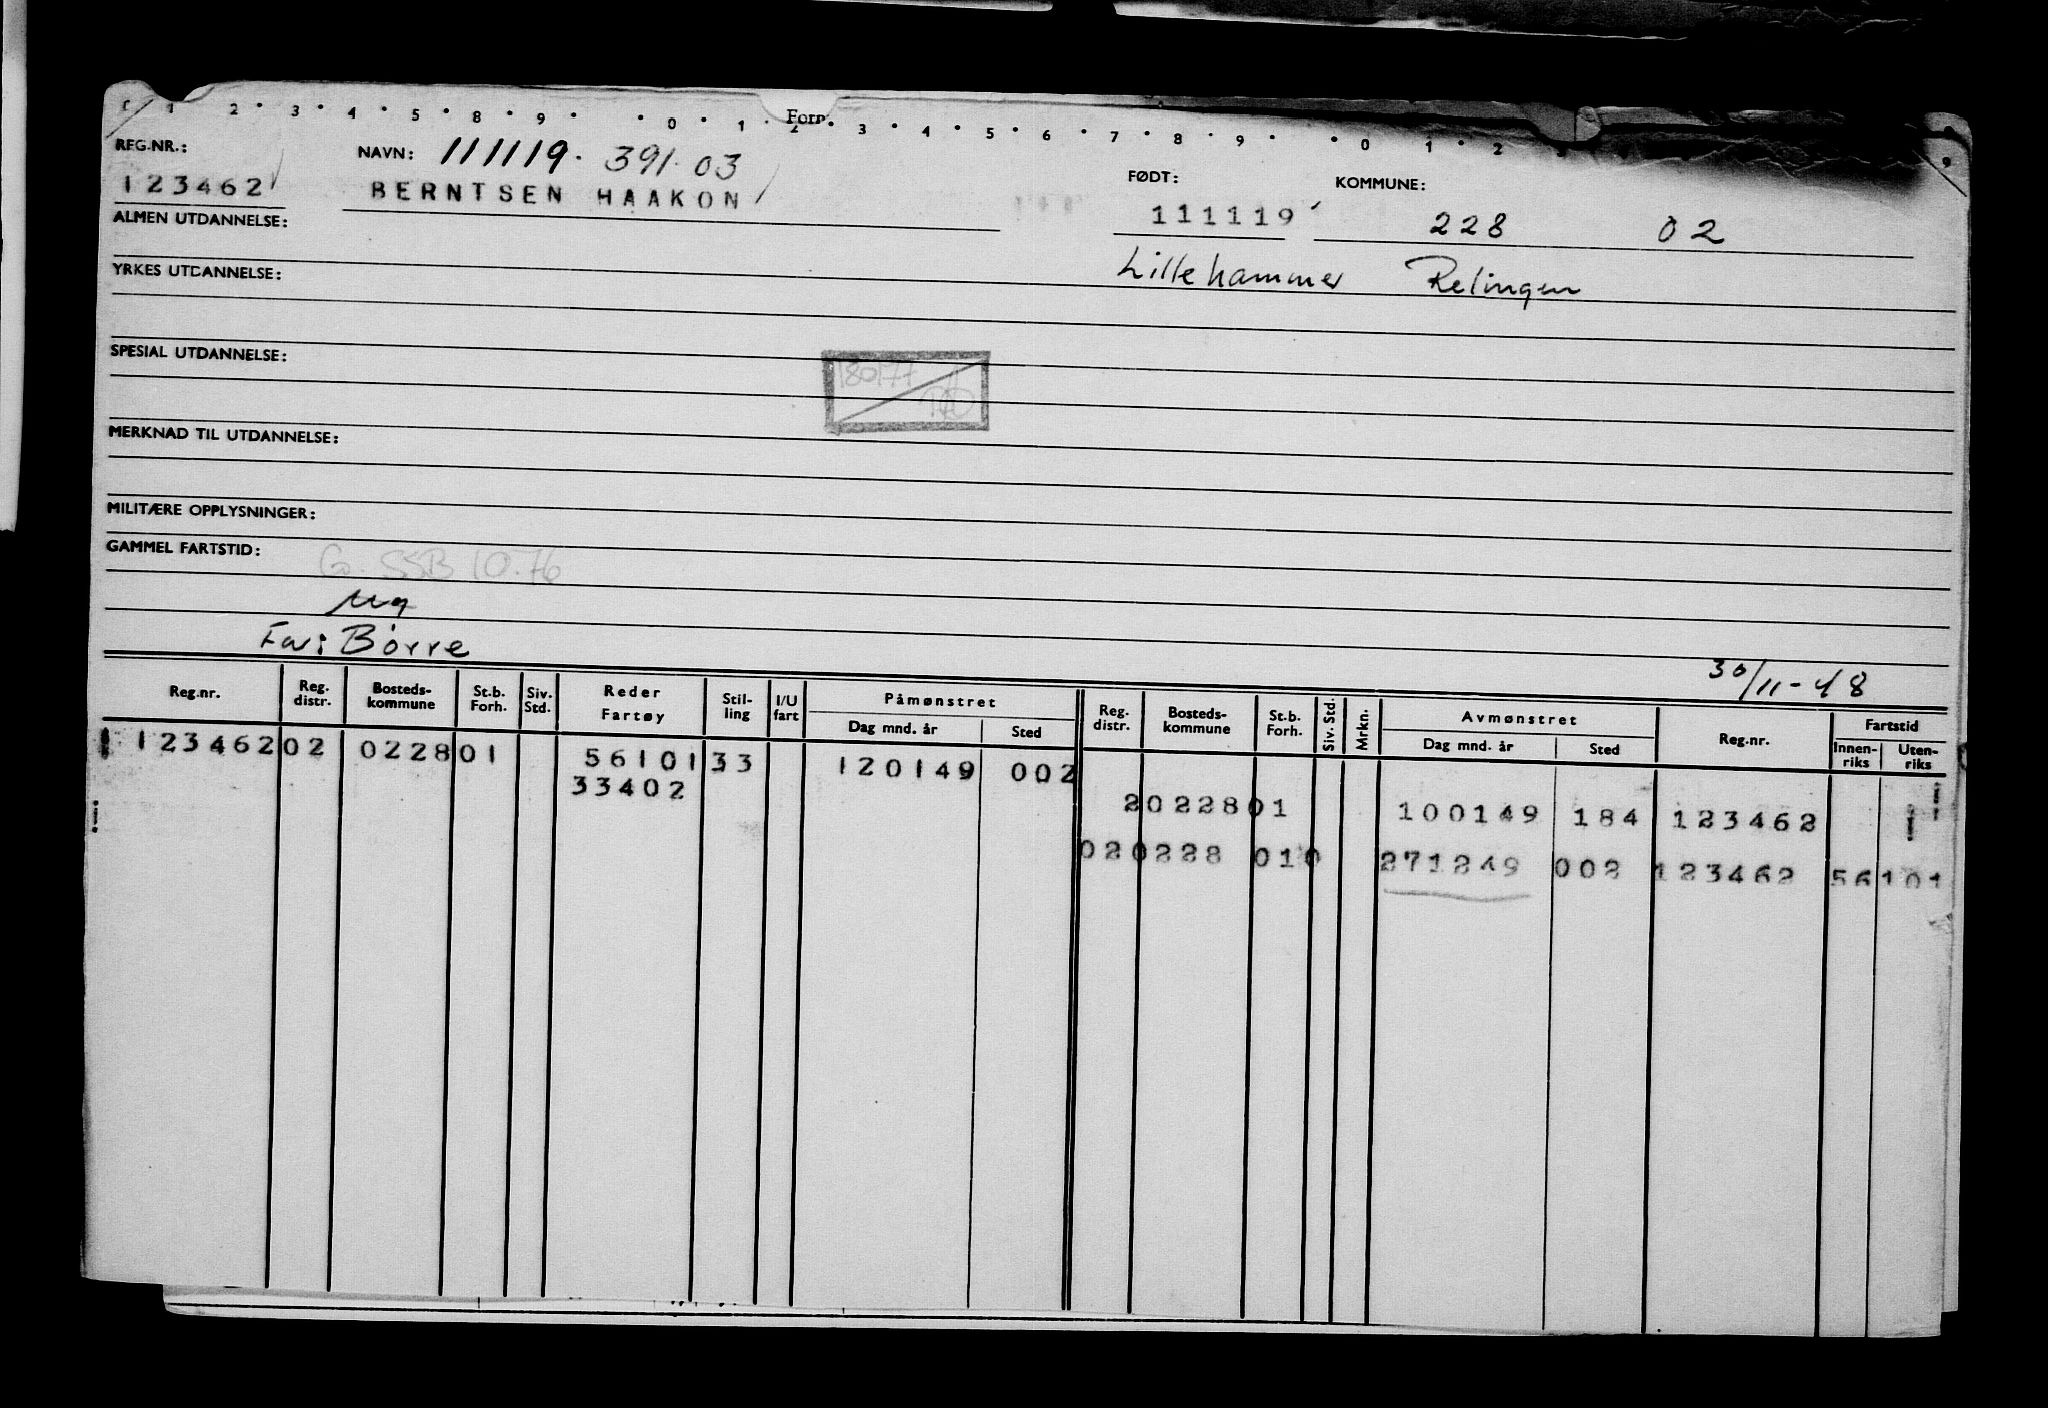 1 2 3 4 5 8 9 0 1 2 3 4 5 6 7 8 9 0 1 2 3 9
Form
REG.NR.: NAVN: 111119. 391.03 FØDT: KOMMUNE:
123462 BERNTSEN HAAKON 111119 228 02
ALMEN UTDANNELSE:
Lillehammer Relingen
YRKES UTDANNELSE:
SPESIAL UTDANNELSE:
180177
MERKNAD TIL UTDANNELSE:
MILITÆRE OPPLYSNINGER:
GAMMEL FARTSTID:
SSB 10.76
Far: Børre
30/11-48
Reg.nr. Reg. distr. Bosteds- kommune St.b. Forh. Siv. Std. Reder Fartøy Stil- ling I/U fart Påmønstret Dag mnd. år Sted Reg. distr. Bosteds- kommune St.b. Forh. Siv. Std. Mrkn. Avmønstret Dag mnd. år Sted Reg.nr. Fartstid Innen- riks Uten- riks
123462 02 0228 01 56101 33 120149 002
33402
2 0228 01 100149 184 123462
02 0228 010 271249 002 123462 56101